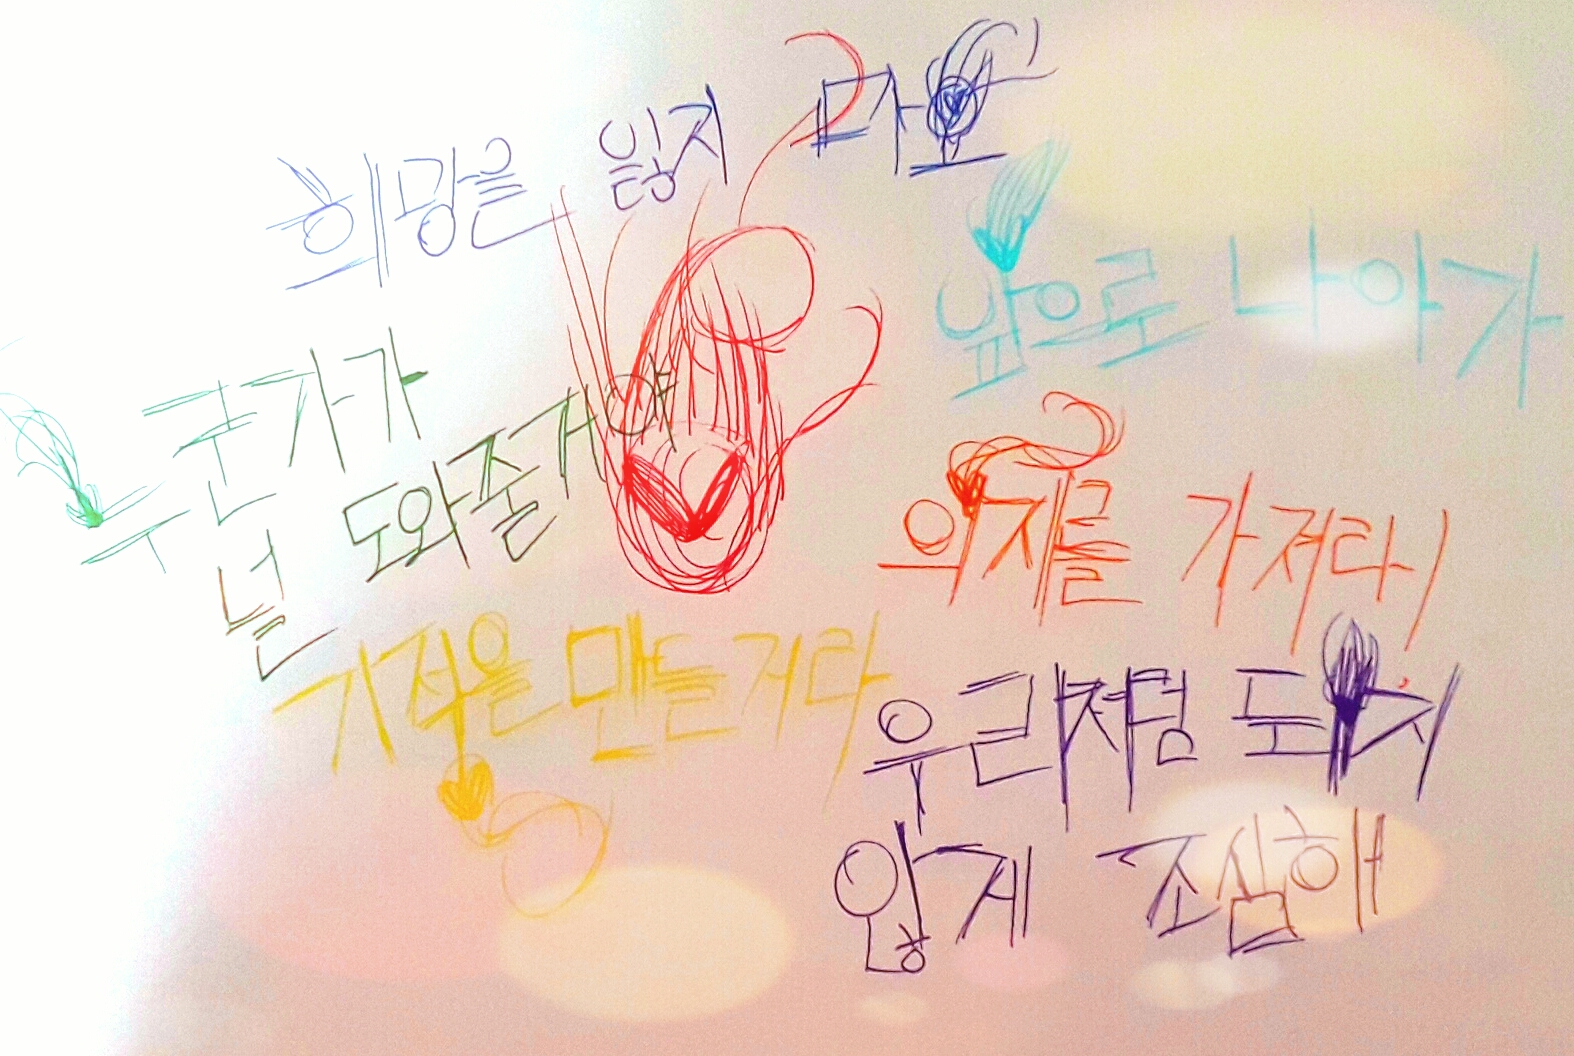 희망을 잃지 마요
앞으로 나아가
누군가가
널 도와줄거야
의지를 가져라!
기적을 만들거라
우리처럼 되지
않게 조심해